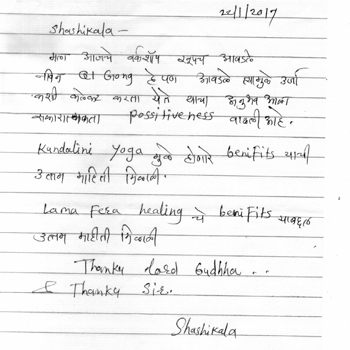 22/1/2017
Shashikala -
मला आजचे वर्कशॉप खूपच आवडले
QI Gong हे पण आवडले त्यामुळे उर्जा
कशी कलेक्ट करता येते याचा अनुभव आला
सकारात्मकता possitiveness वाढली आहे.
Kundalini Yoga मुळे होणारे benifits याची
उत्तम माहिती मिळाली.
Lama Fera healing चे benifits याबद्दल
उत्तम माहीती मिळाली
Thanku Lord Budhha ..
& Thanku Sir.
Shashikala